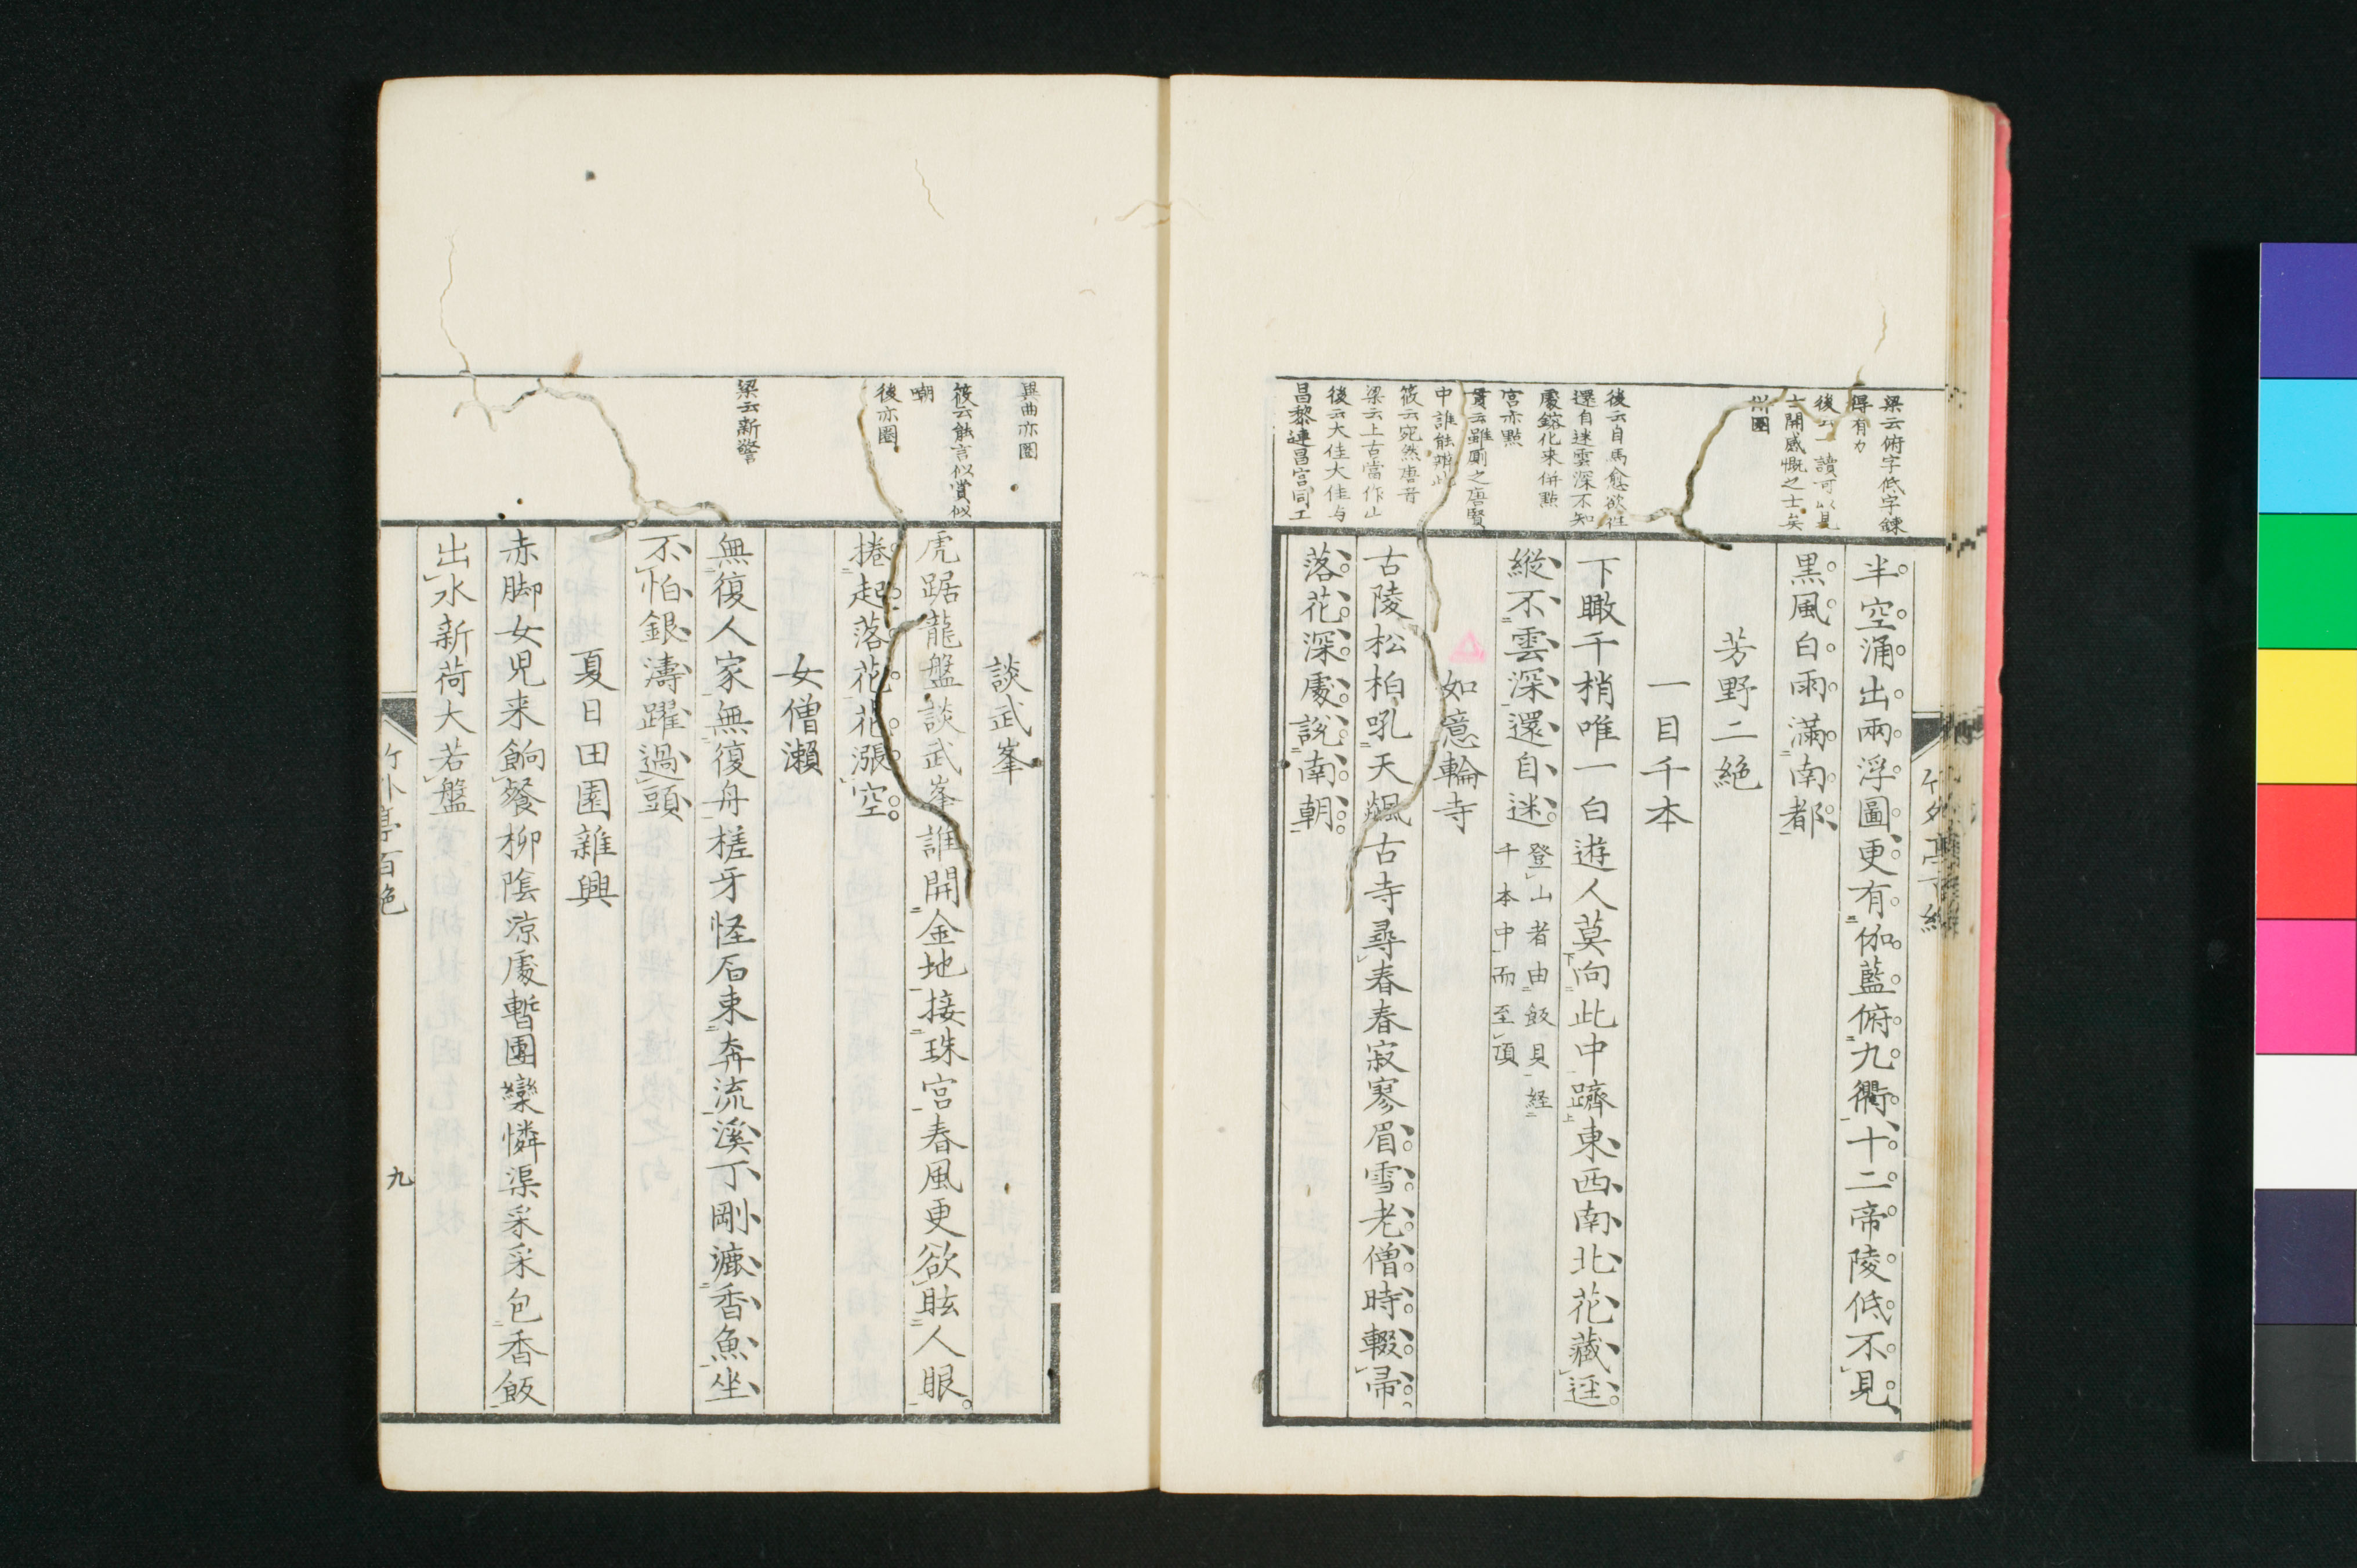 梁云俯字低字錬
得有力
後云一讀可以見
士開感慨之士矣
川圏
後云自馬愈欲往
還自迷雲深不知
處鎔化来併點
宮亦點
貫云雖厠之唐賢
中誰能辨此
筱云宛然唐音
梁云上古當作山
後云大佳大佳与
昌黎連昌宮同工
半空涌出兩浮圖更有伽藍俯九衢十二帝陵低不見
黒風白雨滿南都
芳野二絶
一目千本
下瞰千梢唯一白遊人莫向此中躋東西南北花藏逕
縦不雲深還自迷
登山者由飯貝経
千本中而至頂
如意輪寺
古陵松柏吼天飆古寺尋春春寂寥眉雪老僧時輟帚
落花深處説南朝
異曲亦圏
筱云軷言似賞似
嘲
後亦圏
梁云新警
談武峯
虎踞龍盤談武峯誰開金地接珠宮春風更欲眩人眼
捲起落花花漲空
女僧瀬
無復人家無復舟槎牙怪石束奔流溪丁剛漉香魚坐
不怕銀濤躍過頭
夏日田園雑興
赤脚女児来餉餐柳陰涼處暫團欒憐渠采采包香飯
出水新荷大若盤
竹外亭百絶
九